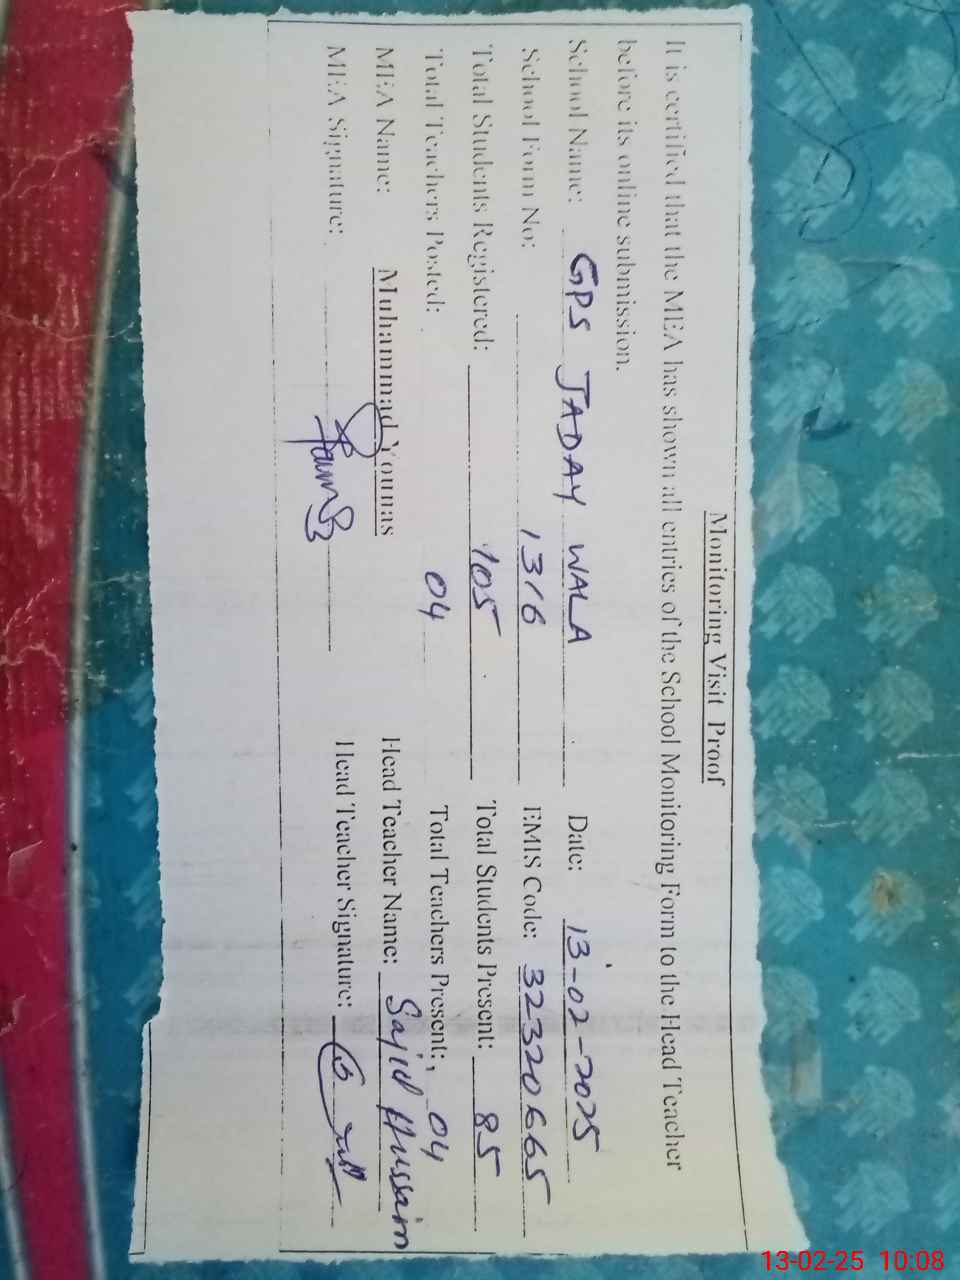 Monitoring Visit Proof
It is certified that the MEA has shown all entries of the School Monitoring Form to the Head Teacher
before its online submission.
School Name: GPS JADAY WALA Date: 13-02-2025
School Form No: 1316 EMIS Code: 32320665
Total Students Registered: 105 Total Students Present: 85
Total Teachers Posted: 04 Total Teachers Present: 04
MEA Name: Muhammad Younas Head Teacher Name: Sajid Hussain
MEA Signature: Head Teacher Signature:
13-02-25 10:08